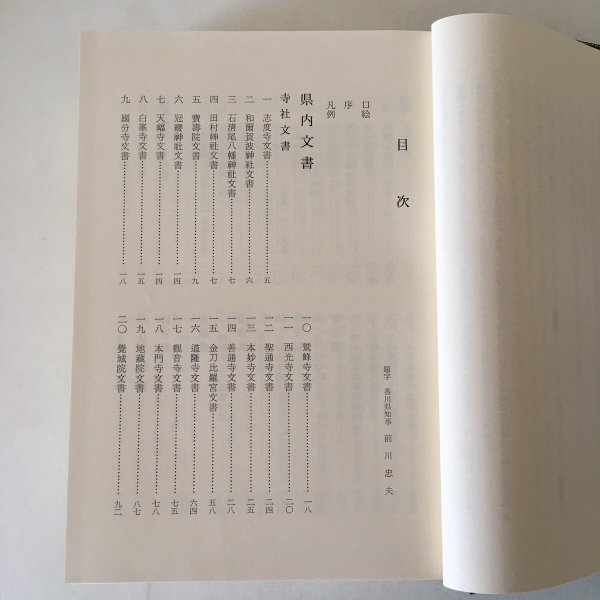 目次
題字 香川県知事 前川忠夫
口絵
序
凡例
県内文書
寺社文書
一 志度寺文書……………五
二 和爾賀波神社文書……………六
三 石清尾八幡神社文書……………七
四 田村神社文書……………七
五 寶壽院文書……………九
六 冠纓神社文書……………一四
七 天福寺文書……………一四
八 白峯寺文書……………一五
九 國分寺文書……………一八
一〇 鷲峰寺文書……………一八
一一 西光寺文書……………二〇
一二 聖通寺文書……………二四
一三 本妙寺文書……………二五
一四 善通寺文書……………二八
一五 金刀比羅宮文書……………五八
一六 道隆寺文書……………六四
一七 觀音寺文書……………七五
一八 本門寺文書……………七八
一九 地藏院文書……………八七
二〇 覺城院文書……………九二